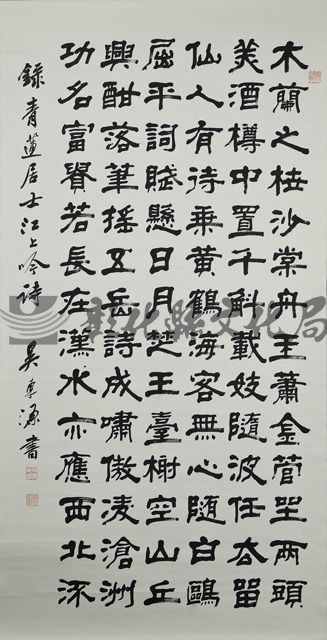 木蘭之枻沙棠舟玉簫金管坐兩頭
美酒樽中置千斛載妓隨波任去留
仙人有待乘黃鶴海客無心隨白鷗
屈平詞賦懸日月楚王臺榭空山丘
興酣落筆搖五岳詩成嘯傲凌滄洲
功名富貴若長在漢水亦應西北流
錄青蓮居士江上吟詩 吳源書
彰化縣文化局